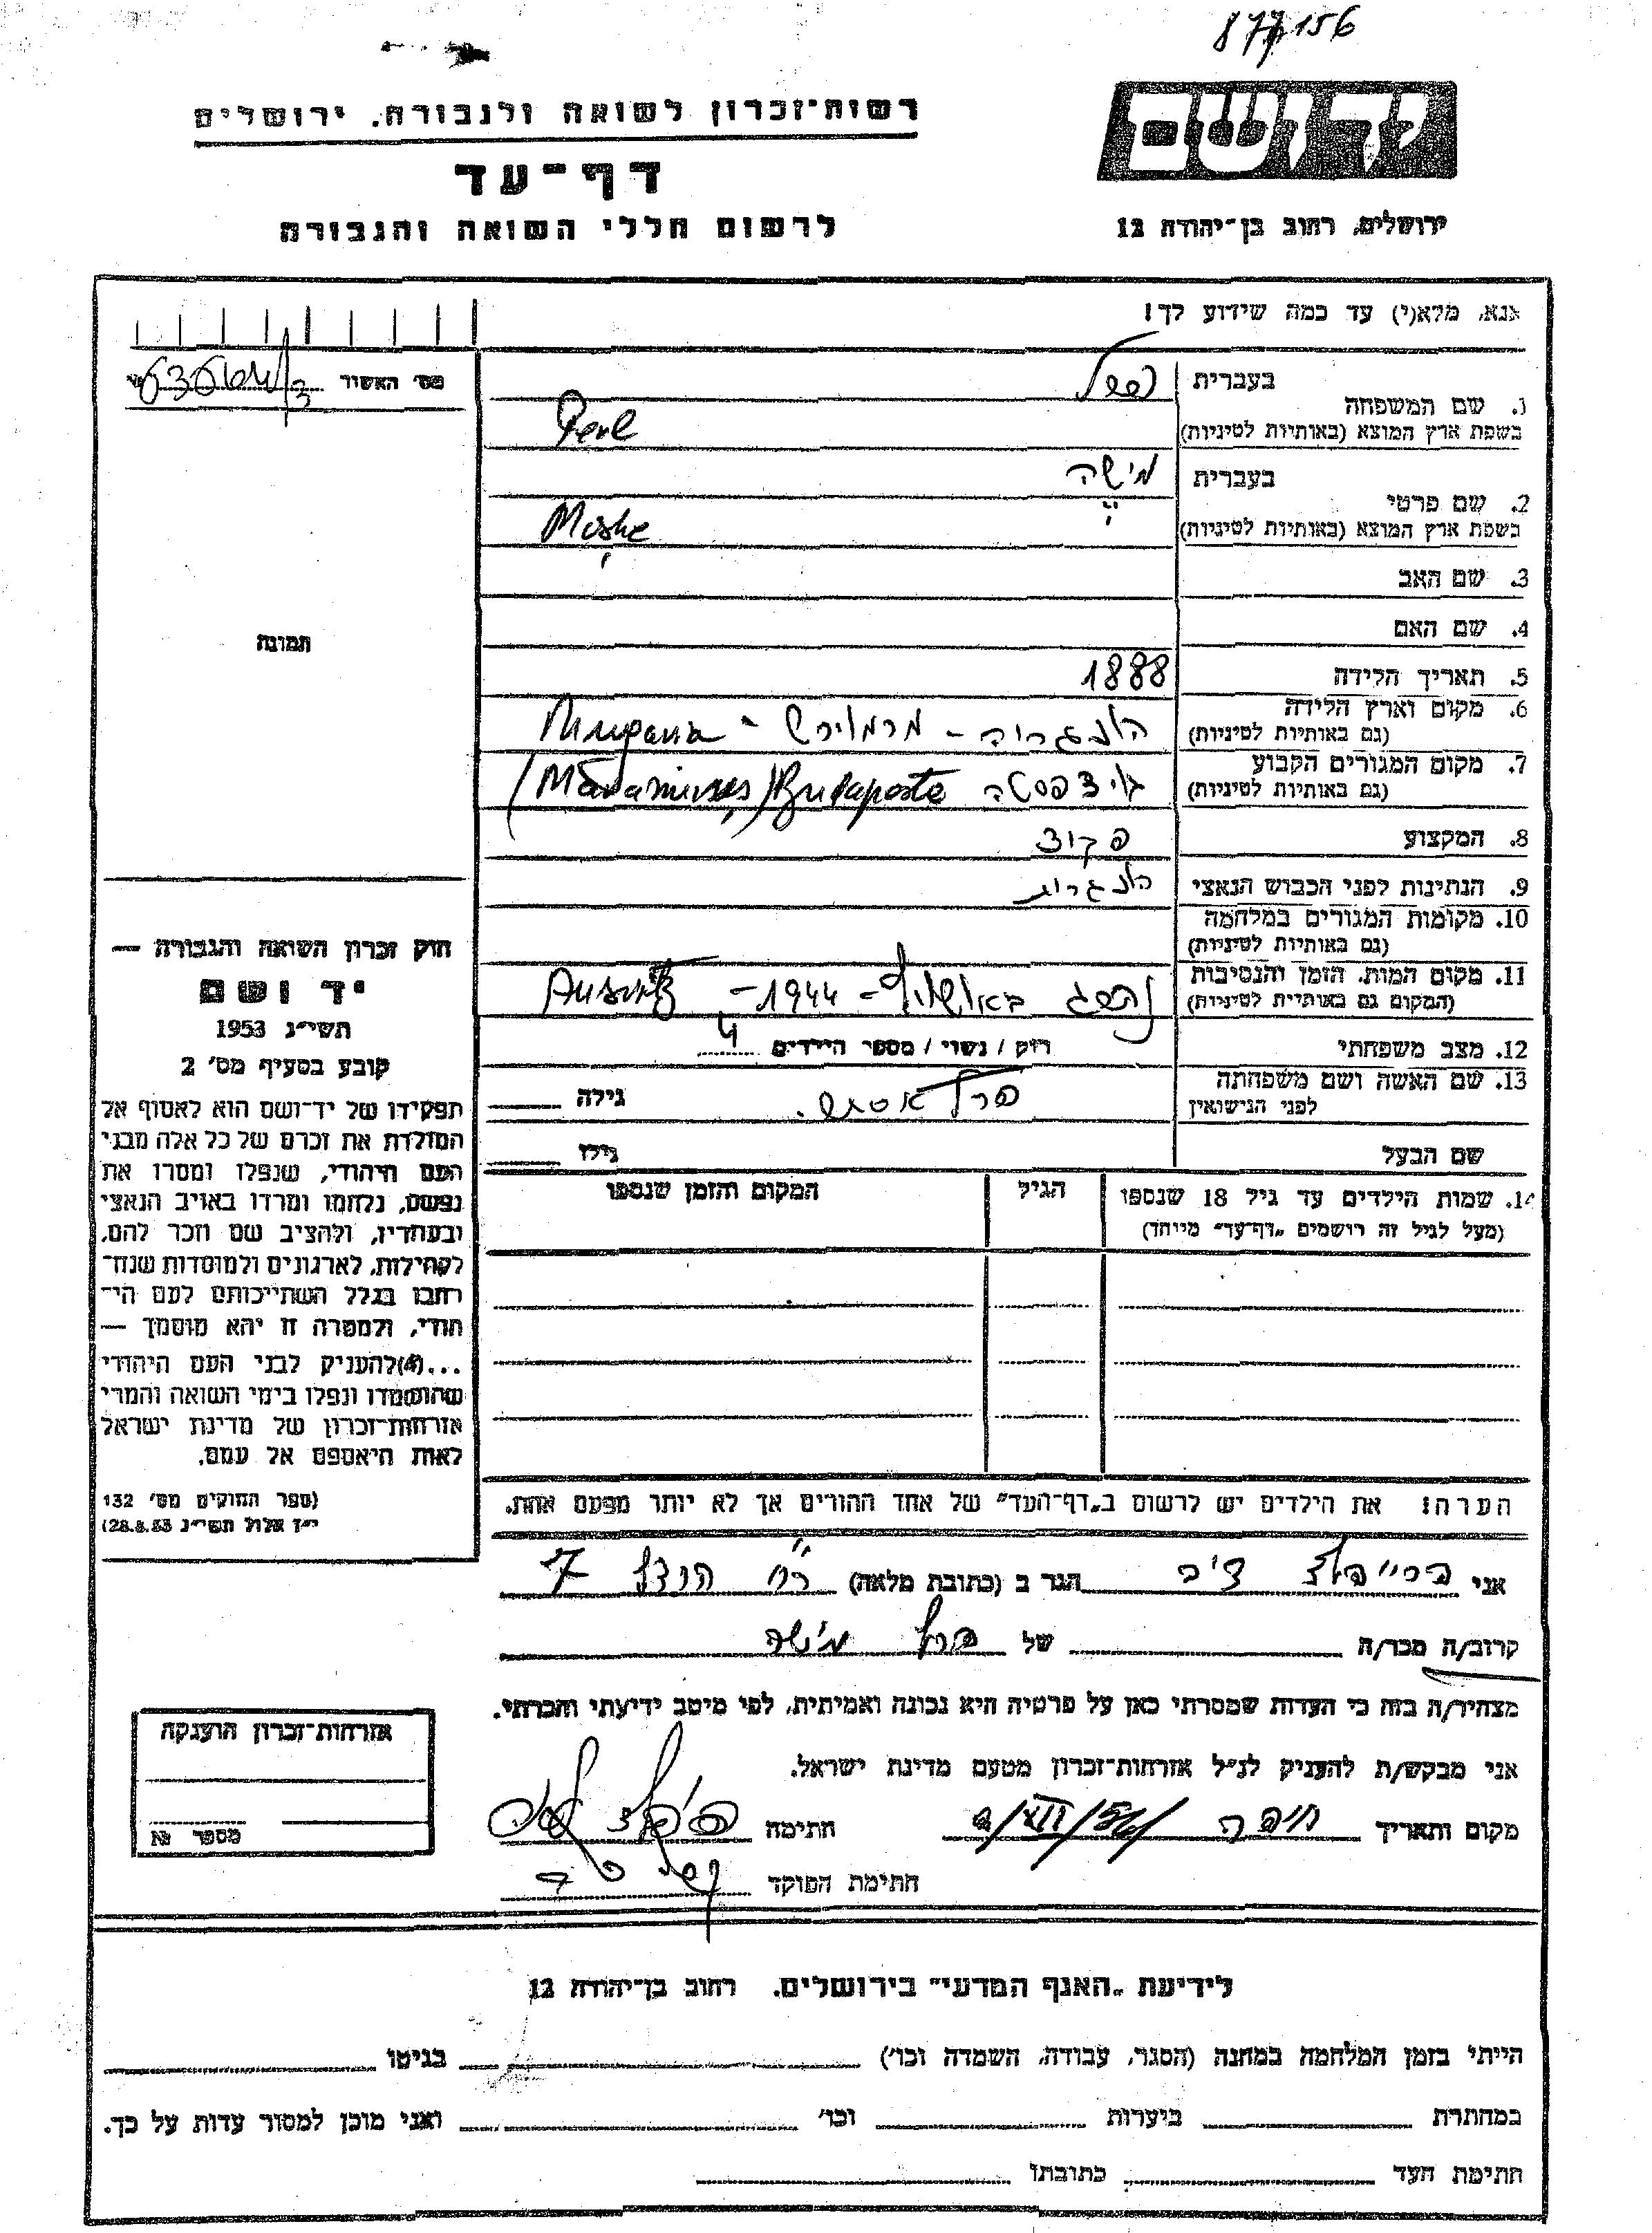 877/156
רשות־זכרון לשואה ולגבורה, ירושלים
ידושם
דף־עד
לרשום חללי השואה והגבורה
ירושלים, רחוב בן־יהודה 12
אנא, מלא(י) עד כמה שידוע לך!
מס' האשור
בעברית
1. שם המשפחה
בשפת ארץ המוצא (באותיות לטיניות) Perl
בעברית
2. שם פרטי
בשפת ארץ המוצא (באותיות לטיניות) Moshe
3. שם האב
4. שם האם
תמונה
5. תאריך הלידה 1888
6. מקום וארץ הלידה
(גם באותיות לטיניות) הונגריה - מרמורש -
7. מקום המגורים הקבוע
(גם באותיות לטיניות) Budapesta
8. המקצוע פקיד
9. הנתינות לפני הכבוש הנאצי הונגרית
10. מקומות המגורים במלחמה
(גם באותיות לטיניות)
11. מקום המות, הזמן והנסיבות
(המקום גם באותיות לטיניות) נהרג באושויץ - 1944 -
12. מצב משפחתי רוק / נשוי / מספר הילדים 4
13. שם האשה ושם משפחתה
לפני הנישואין פרל גילה
שם הבעל גילו
14. שמות הילדים עד גיל 18 שנספו הגיל המקום והזמן שנספו
(מעל לגיל זה רושמים „דף־עד" מיוחד)
חוק זכרון השואה והגבורה —
יד ושם
תשי״ג 1953
קובע בסעיף מס' 2
תפקידו של יד־ושם הוא לאסוף אל
המולדת את זכרם של כל אלה מבני
העם היהודי, שנפלו ומסרו את
נפשם, נלחמו ומרדו באויב הנאצי
ובעוזריו, ולהציב שם וזכר להם,
לקהילות, לארגונים ולמוסדות שנח־
רבו בגלל השתייכותם לעם הי־
הודי, ולמטרה זו יהא מוסמך —
...(4)להעניק לבני העם היהודי
שהושמדו ונפלו בימי השואה והמרי
אזרחות־זכרון של מדינת ישראל
לאות היאספם אל עמם.
(ספר החוקים מס' 132
י״ז אלול תשי״ג 28.8.53)
הערה: את הילדים יש לרשום ב„דף־העד" של אחד ההורים אך לא יותר מפעם אחת.
אני הגר ב (כתובת מלאה) 7
קרוב/ה מכר/ה של פרל משה
מצהיר/ה בזה כי העדות שמסרתי כאן על פרטיה היא נכונה ואמיתית, לפי מיטב ידיעתי והכרתי.
אני מבקש/ת להעניק לנ״ל אזרחות־זכרון מטעם מדינת ישראל.
מקום ותאריך חיפה חתימה
חתימת הפוקד
אזרחות־זכרון הוענקה
מספר №
לידיעת „האגף המדעי" בירושלים, רחוב בן־יהודה 12
הייתי בזמן המלחמה במחנה (הסגר, עבודה, השמדה וכו') בגיטו
במחתרת ביערות וכו' ואני מוכן למסור עדות על כך.
חתימת העד כתובתו